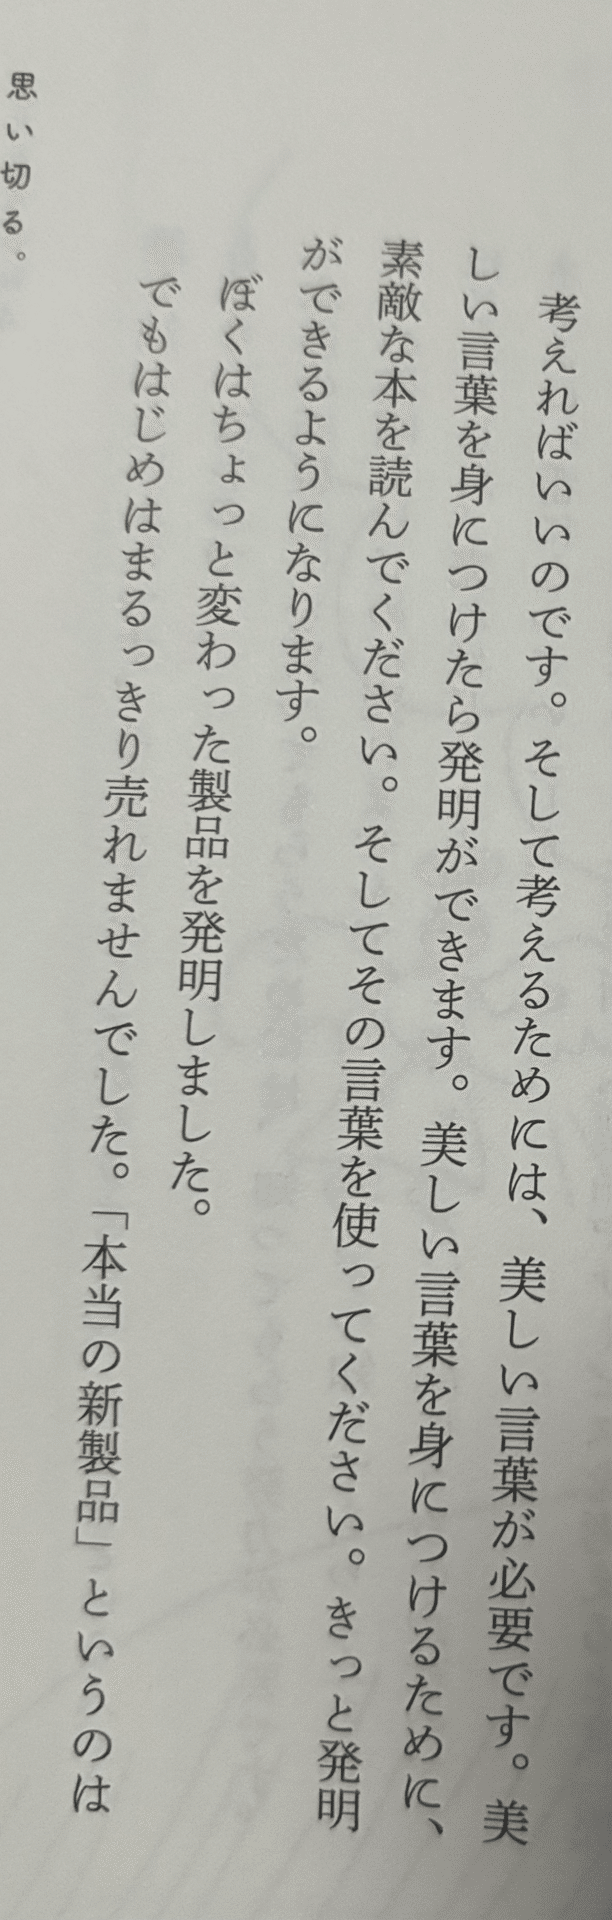 考えればいいのです。そして考えるためには、美しい言葉が必要です。美
しい言葉を身につけたら発明ができます。美しい言葉を身につけるために、
素敵な本を読んでください。そしてその言葉を使ってください。きっと発明
ができるようになります。
ぼくはちょっと変わった製品を発明しました。
でもはじめはまるっきり売れませんでした。「本当の新製品」というのは
思い切る。